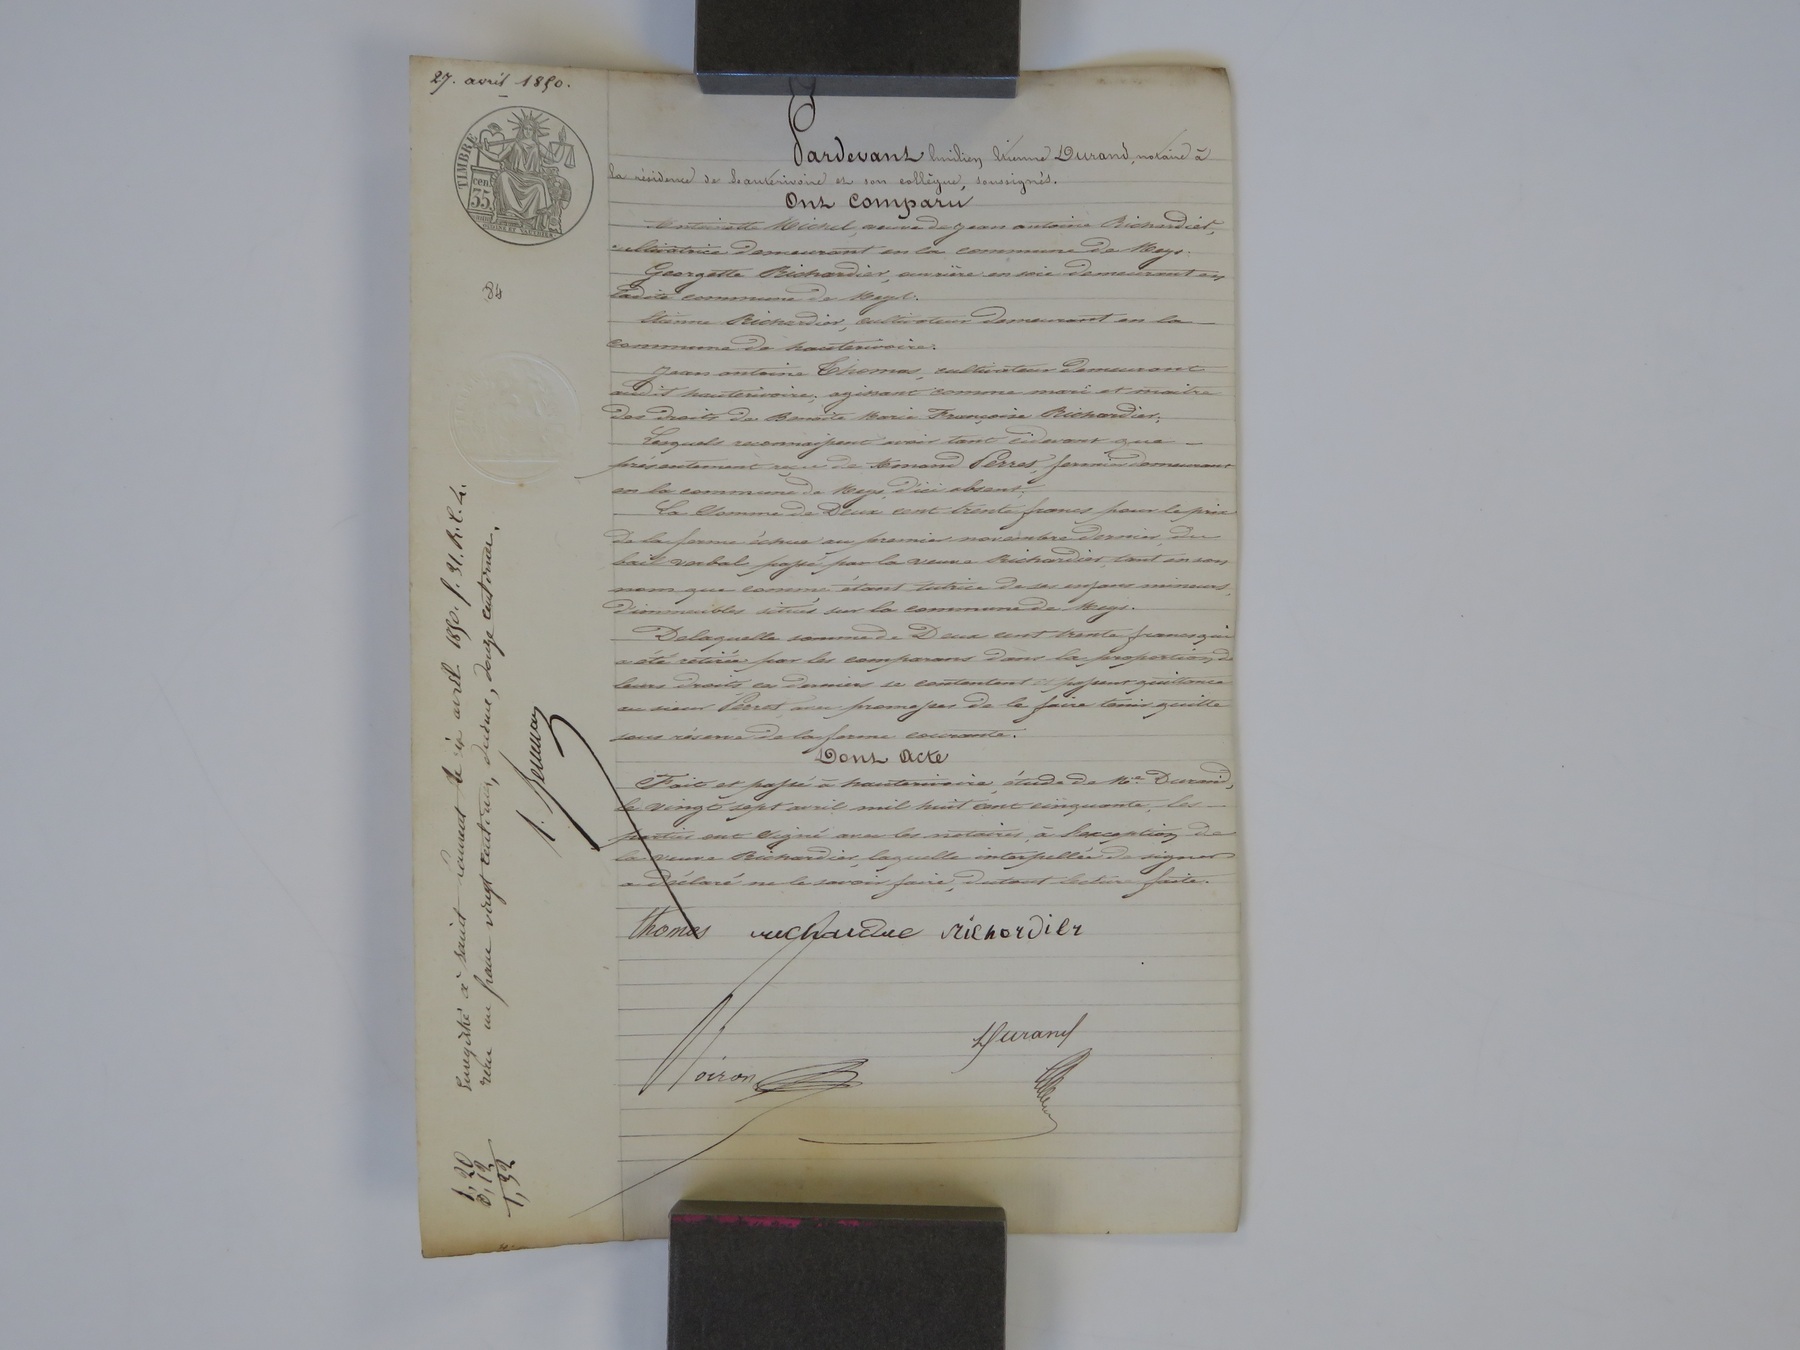 27. avril 1850.
TIMBRE
cen.
55
84
Pardevant Emilien Etienne Durand, notaire à
la résidence de hauterivoire et son collègue, soussignés.
Ont Comparu
Antoinette Michel, veuve de Jean antoine Richardier,
cultivatrice demeurant en la commune de Meys.
Georgette Richardier, ouvrière en soie demeurant en
ladite commune de Meys.
Etienne Richardier, cultivateur demeurant en la
commune de hauterivoire.
Jean antoine Thomas, cultivateur demeurant
audit hauterivoire, agissant comme mari et maitre
des droits de Benoite Marie Françoise Richardier.
Lesquels reconnaissent avoir tant cidevant que
présentement reçu de Perret, fermier demeurant
en la commune de Meys, d'ici absent,
La Somme de Deux cent trente francs pour le prix
de la ferme échue au premier novembre dernier, du
bail verbal passé par la veuve Richardier, tant en son
nom que comme étant tutrice de ses enfans mineurs,
d'immeubles situés sur la commune de Meys.
Delaquelle somme de Deux cent trente francs qui
a été retirée par les comparans dans la proportion de
leurs droits ces derniers se contentent et passent quittance
au sieur Perret, avec promesses de le faire tenir quitte
sous réserve de la ferme courante.
Dont Acte
Fait et passé à hauterivoire, étude de Me. Durand,
le vingt sept avril mil huit cent cinquante, les
parties ont signé avec les notaires, à l'exception de
la veuve Richardier, laquelle interpellée de signer
a déclaré ne le savoir faire, dutout lecture faite.
Thomas richardier richardier
Durand
Noiron
Enregistré à saint Laurent le avril 1850. f. 31. R. C. 4.
reçu un franc vingt centimes, dixme, douze centimes.
1,20
0,12
1,32